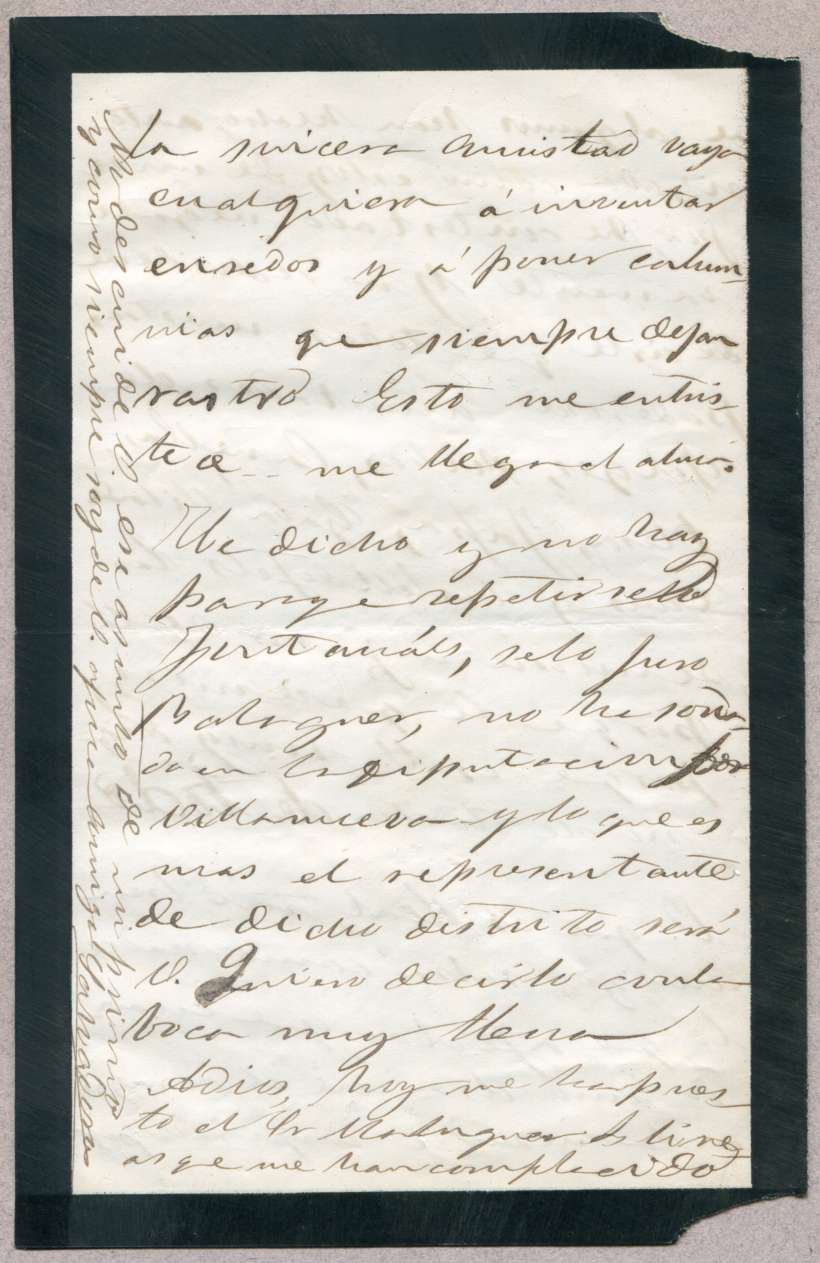 la sincera amistad vaya
cualquiera á inventar
enredos y á poner calum-
nias que siempre dejan
rastro Esto me entris-
tece me llega al alma.
He dicho y no hay
para que repetirselo
Fontanáls, se lo juro
Balaguer, no he soña-
do en la diputacion por
Villanueva y lo que es
mas el representante
de dicho distrito será
V. Quiero decirlo con la
boca muy llena
Adios, hoy me han pues-
to el Sr Balaguer
as que me han complacido
No descuide V. ese asunto de mi primo
y como siempre soy de V. afmo amigo